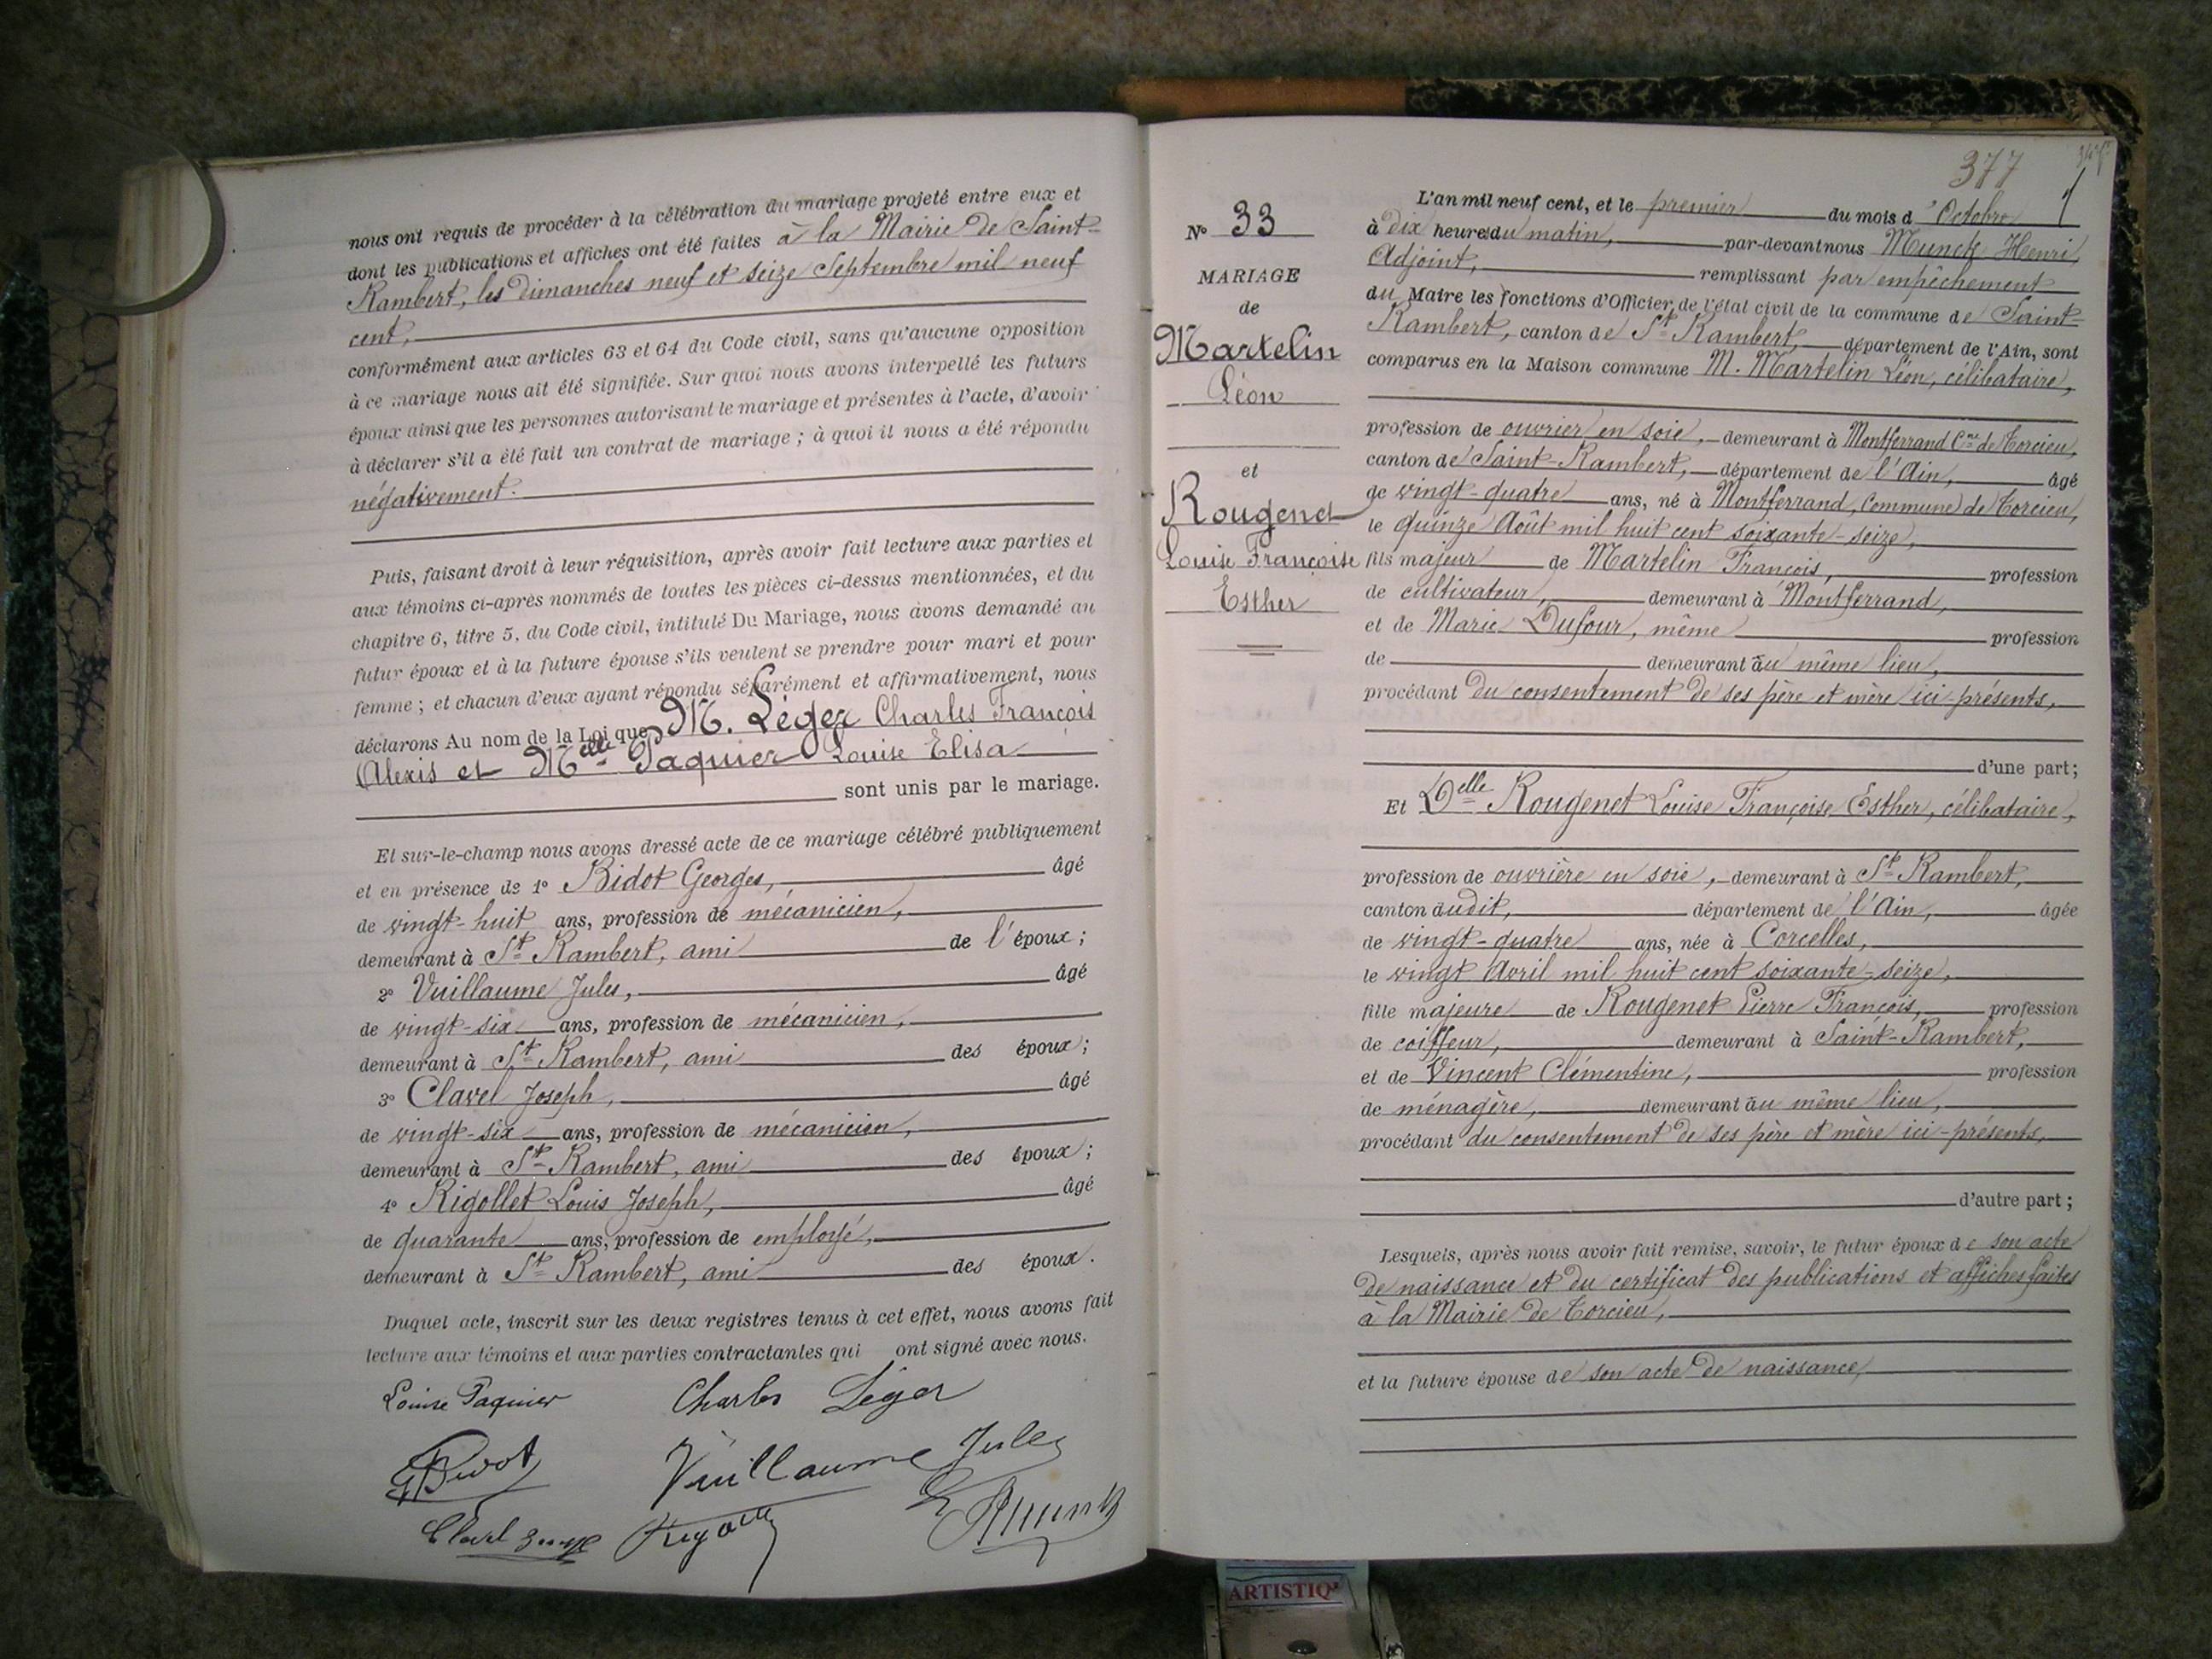 nous ont requis de procéder à la célébration du mariage projeté entre eux et
dont les publications et affiches ont été faites à la Mairie de Saint-
Rambert, les dimanches neuf et seize Septembre mil neuf
cent,
conformément aux articles 63 et 64 du Code civil, sans qu'aucune opposition
à ce mariage nous ait été signifiée. Sur quoi nous avons interpellé les futurs
époux ainsi que les personnes autorisant le mariage et présentes à l'acte, d'avoir
à déclarer s'il a été fait un contrat de mariage ; à quoi il nous a été répondu
négativement.
Puis, faisant droit à leur réquisition, après avoir fait lecture aux parties et
aux témoins ci-après nommés de toutes les pièces ci-dessus mentionnées, et du
chapitre 6, titre 5, du Code civil, intitulé Du Mariage, nous avons demandé au
futur époux et à la future épouse s'ils veulent se prendre pour mari et pour
femme ; et chacun d'eux ayant répondu séparément et affirmativement, nous
déclarons Au nom de la Loi que M. Léger Charles François
Alexis et Melle Paquier Louise Elisa
sont unis par le mariage.
Et sur-le-champ nous avons dressé acte de ce mariage célébré publiquement
et en présence de 1° Bidot Georges, âgé
de vingt-huit ans, profession de mécanicien,
demeurant à St Rambert, ami de l'époux ;
2° Vuillaume Jules, âgé
de vingt-six ans, profession de mécanicien,
demeurant à St Rambert, ami des époux ;
3° Clavel Joseph, âgé
de vingt-six ans, profession de mécanicien,
demeurant à St Rambert, ami des époux ;
4° Rigollet Louis Joseph, âgé
de quarante ans, profession de employé,
demeurant à St Rambert, ami des époux.
Duquel acte, inscrit sur les deux registres tenus à cet effet, nous avons fait
lecture aux témoins et aux parties contractantes qui ont signé avec nous.
Louise Paquier Charles Léger
Vuillaume Jules
377
N° 33
MARIAGE
de
Martelin
Léon
et
Rougenet
Louise Françoise
Esther
L'an mil neuf cent, et le premier du mois d'Octobre
à dix heures du matin, par-devant nous Munck Henri,
Adjoint, remplissant par empêchement
du Maire les fonctions d'Officier de l'état civil de la commune de Saint-
Rambert, canton de St Rambert, département de l'Ain, sont
comparus en la Maison commune M. Martelin Léon, célibataire,
profession de ouvrier en soie, demeurant à Montferrand Cne de Torcieu,
canton de Saint-Rambert, département de l'Ain, âgé
de vingt-quatre ans, né à Montferrand, Commune de Torcieu,
le quinze Août mil huit cent soixante-seize,
fils majeur de Martelin François, profession
de cultivateur, demeurant à Montferrand,
et de Marie Dufour, même profession
de demeurant au même lieu,
procédant du consentement de ses père et mère ici-présents,
d'une part ;
Et Delle Rougenet Louise Françoise Esther, célibataire,
profession de ouvrière en soie, demeurant à St Rambert,
canton dudit, département de l'Ain, âgée
de vingt-quatre ans, née à Corcelles,
le vingt Avril mil huit cent soixante-seize,
fille majeure de Rougenet Pierre François, profession
de coiffeur, demeurant à Saint-Rambert,
et de Vincent Clémentine, profession
de ménagère, demeurant au même lieu,
procédant du consentement de ses père et mère ici-présents,
d'autre part ;
Lesquels, après nous avoir fait remise, savoir, le futur époux de son acte
de naissance et du certificat des publications et affiches faites
à la Mairie de Torcieu,
et la future épouse de son acte de naissance,
ARTISTIQ